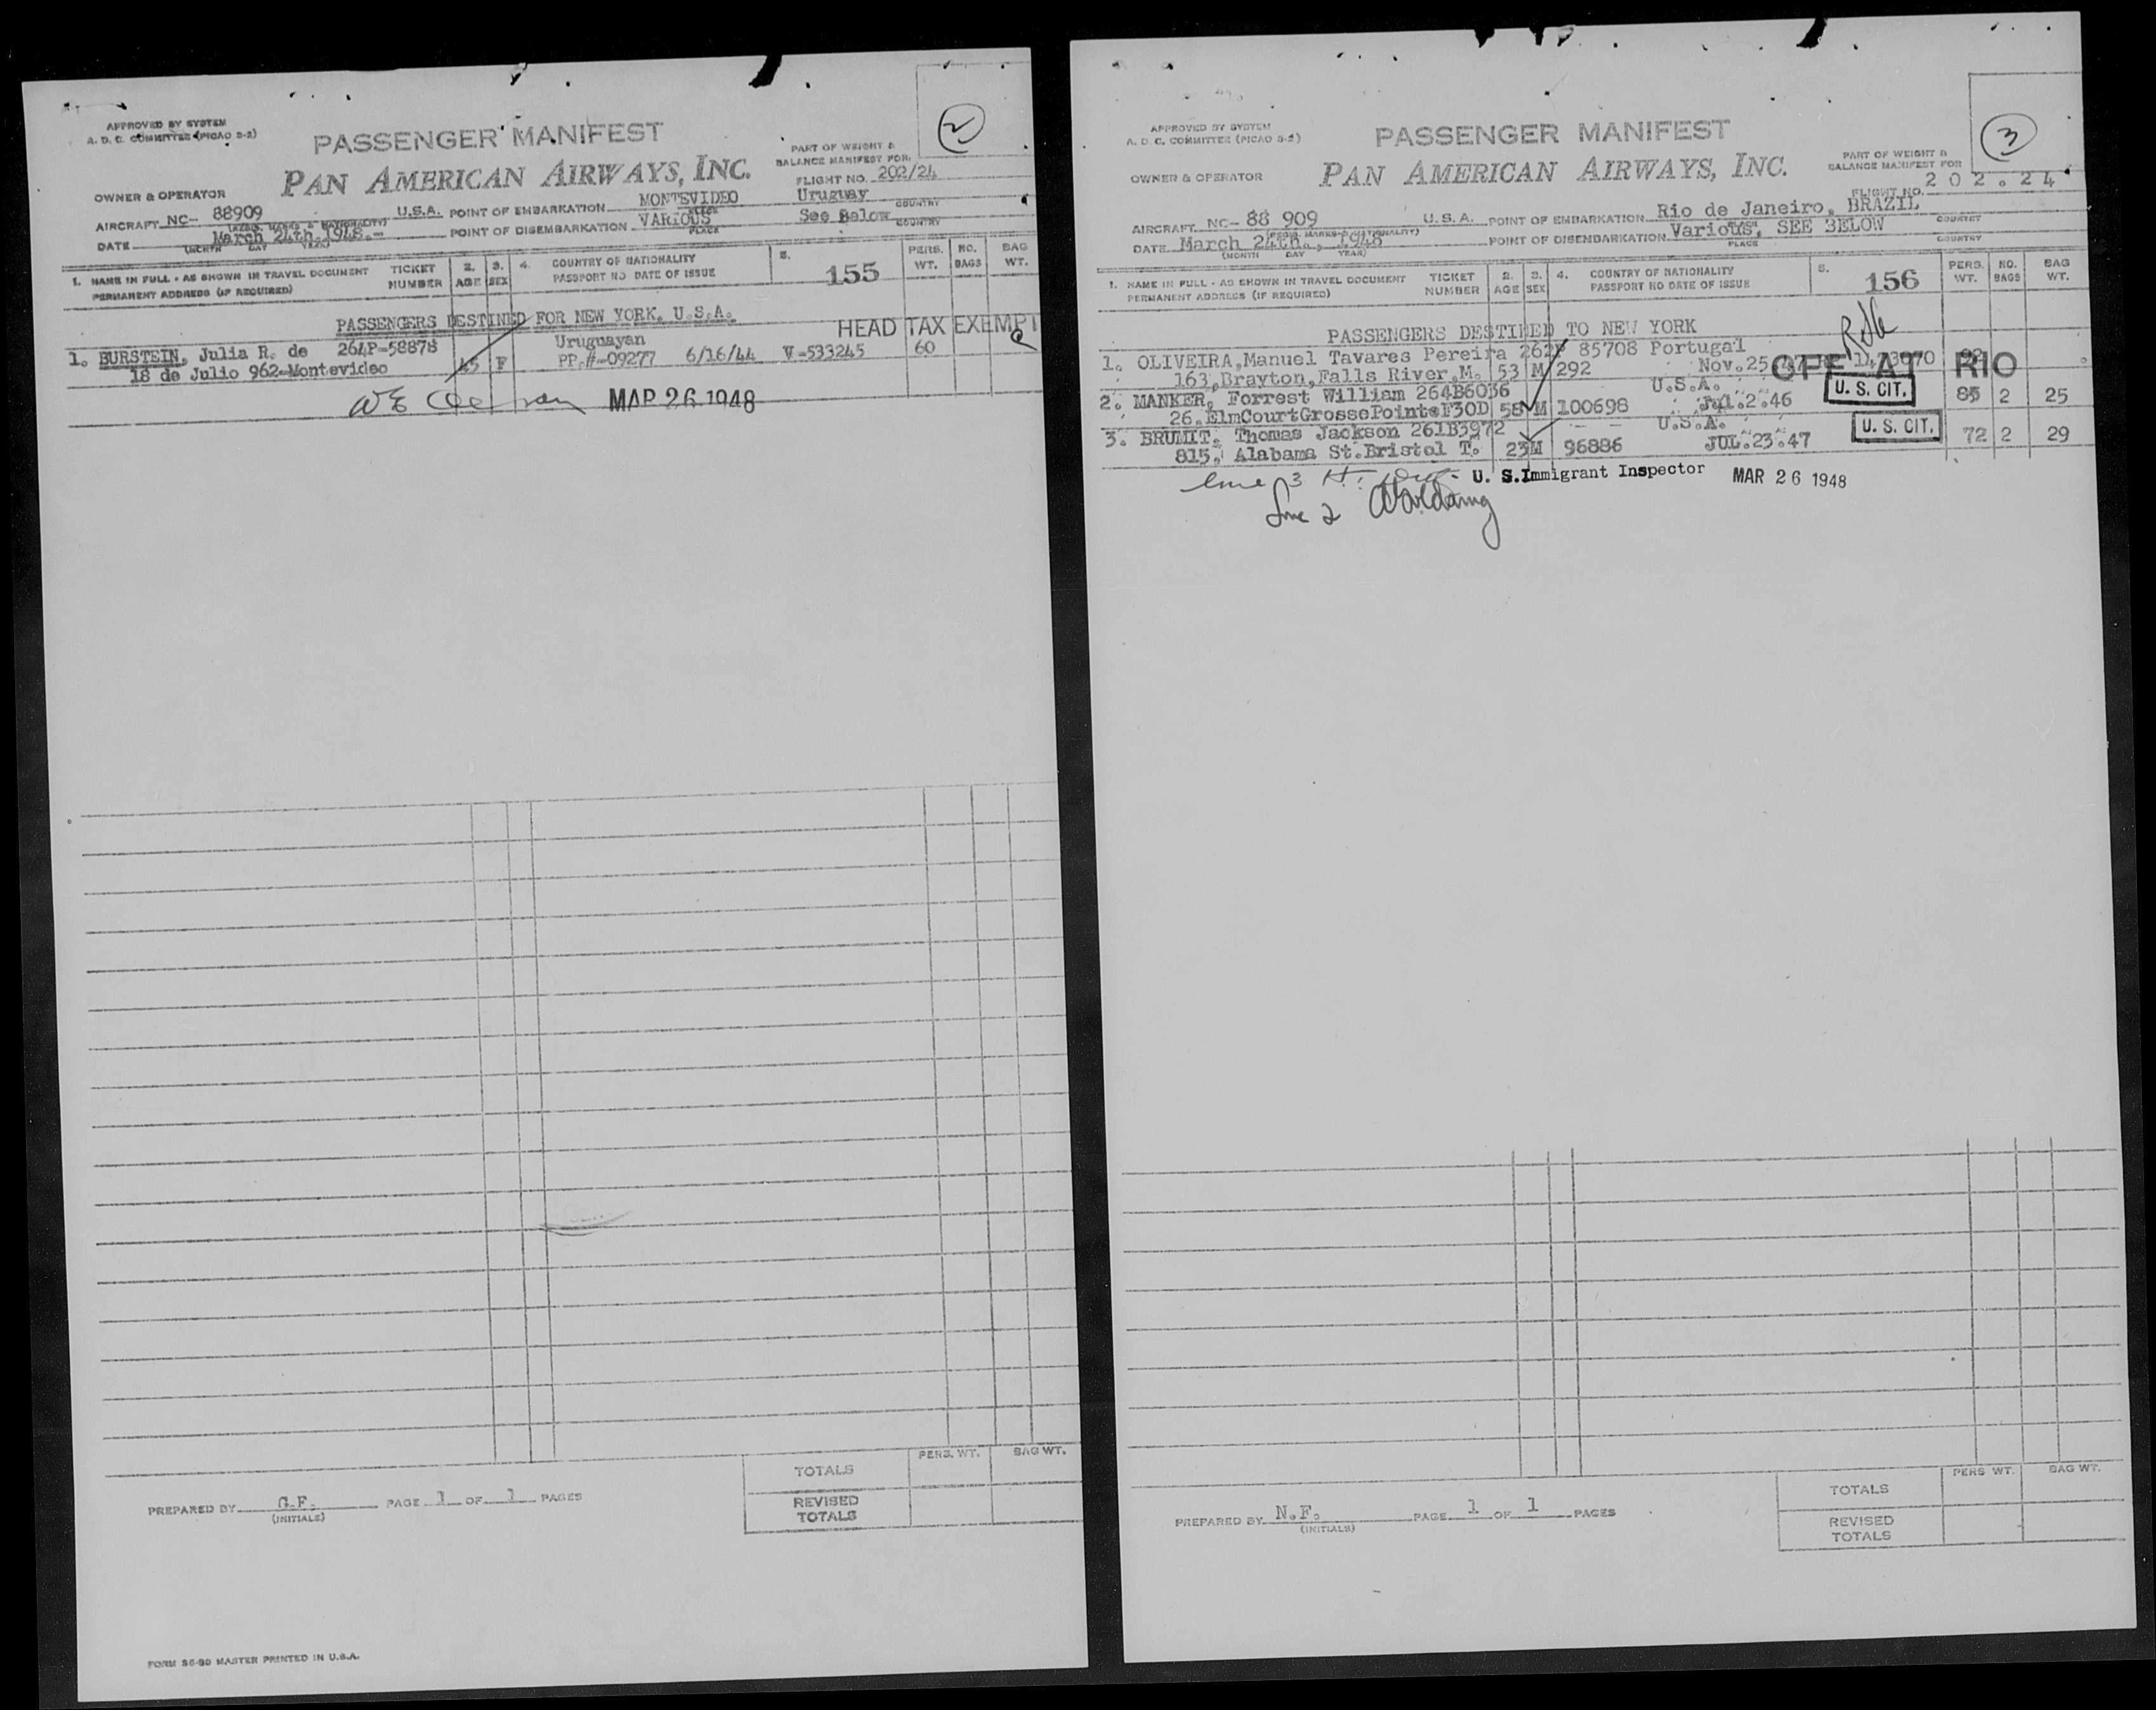 APPROVED BY SYSTEM
A. D. C. COMMITTEE (PICAO S-2)
PASSENGER MANIFEST
2
PART OF WEIGHT &
BALANCE MANIFEST FOR
OWNER & OPERATOR
PAN AMERICAN AIRWAYS, INC.
FLIGHT NO. 202/24
AIRCRAFT NC- 88909 U.S.A. POINT OF EMBARKATION MONTEVIDEO Uruguay
PLACE COUNTRY
DATE March 24th. 1948.- POINT OF DISEMBARKATION VARIOUS See Below
(MONTH DAY YEAR) PLACE COUNTRY
1. NAME IN FULL - AS SHOWN IN TRAVEL DOCUMENT
PERMANENT ADDRESS (IF REQUIRED)
TICKET NUMBER
2. AGE
3. SEX
4. COUNTRY OF NATIONALITY
PASSPORT NO DATE OF ISSUE
5. 155
PERS. WT.
NO. BAGS
BAG WT.
PASSENGERS DESTINED FOR NEW YORK. U.S.A.
HEAD TAX EXEMPT
1. BURSTEIN, Julia R. de 264P-58878 Uruguayan
18 de Julio 962-Montevideo 45 F PP.#-09277 6/16/44 V-533245 60
MAR 26 1948
TOTALS PERS. WT. BAG WT.
REVISED TOTALS
PREPARED BY G.F. PAGE 1 OF 1 PAGES
(INITIALS)
FORM MASTER PRINTED IN U.S.A.
APPROVED BY SYSTEM
A. D. C. COMMITTEE (PICAO S-2)
PASSENGER MANIFEST
3
PART OF WEIGHT &
BALANCE MANIFEST FOR
OWNER & OPERATOR
PAN AMERICAN AIRWAYS, INC.
FLIGHT NO. 202.24
AIRCRAFT NC- 88 909 U.S.A. POINT OF EMBARKATION Rio de Janeiro, BRAZIL
COUNTRY
DATE March 24th., 1948 POINT OF DISEMBARKATION Various, SEE BELOW
(MONTH DAY YEAR) PLACE COUNTRY
1. NAME IN FULL - AS SHOWN IN TRAVEL DOCUMENT
PERMANENT ADDRESS (IF REQUIRED)
TICKET NUMBER
2. AGE
3. SEX
4. COUNTRY OF NATIONALITY
PASSPORT NO DATE OF ISSUE
5. 156
PERS. WT.
NO. BAGS
BAG WT.
PASSENGERS DESTINED TO NEW YORK
1. OLIVEIRA, Manuel Tavares Pereira 262P 85708 Portugal
163, Brayton, Falls River, M. 53 M 292 Nov. 25
AT RIO
2. MANKER, Forrest William 264B6036 U.S.A. U. S. CIT.
26.ElmCourtGrossePointeF30D 58 M 100698 Jul.2.46 85 2 25
3. BRUMIT, Thomas Jackson 261B3972 U.S.A. U. S. CIT.
815, Alabama St.Bristol T. 23 M 96886 JUL.23.47 72 2 29
Line 3
U. S. Immigrant Inspector MAR 26 1948
Line 2
TOTALS PERS WT. BAG WT.
REVISED TOTALS
PREPARED BY N.F. PAGE 1 OF 1 PAGES
(INITIALS)